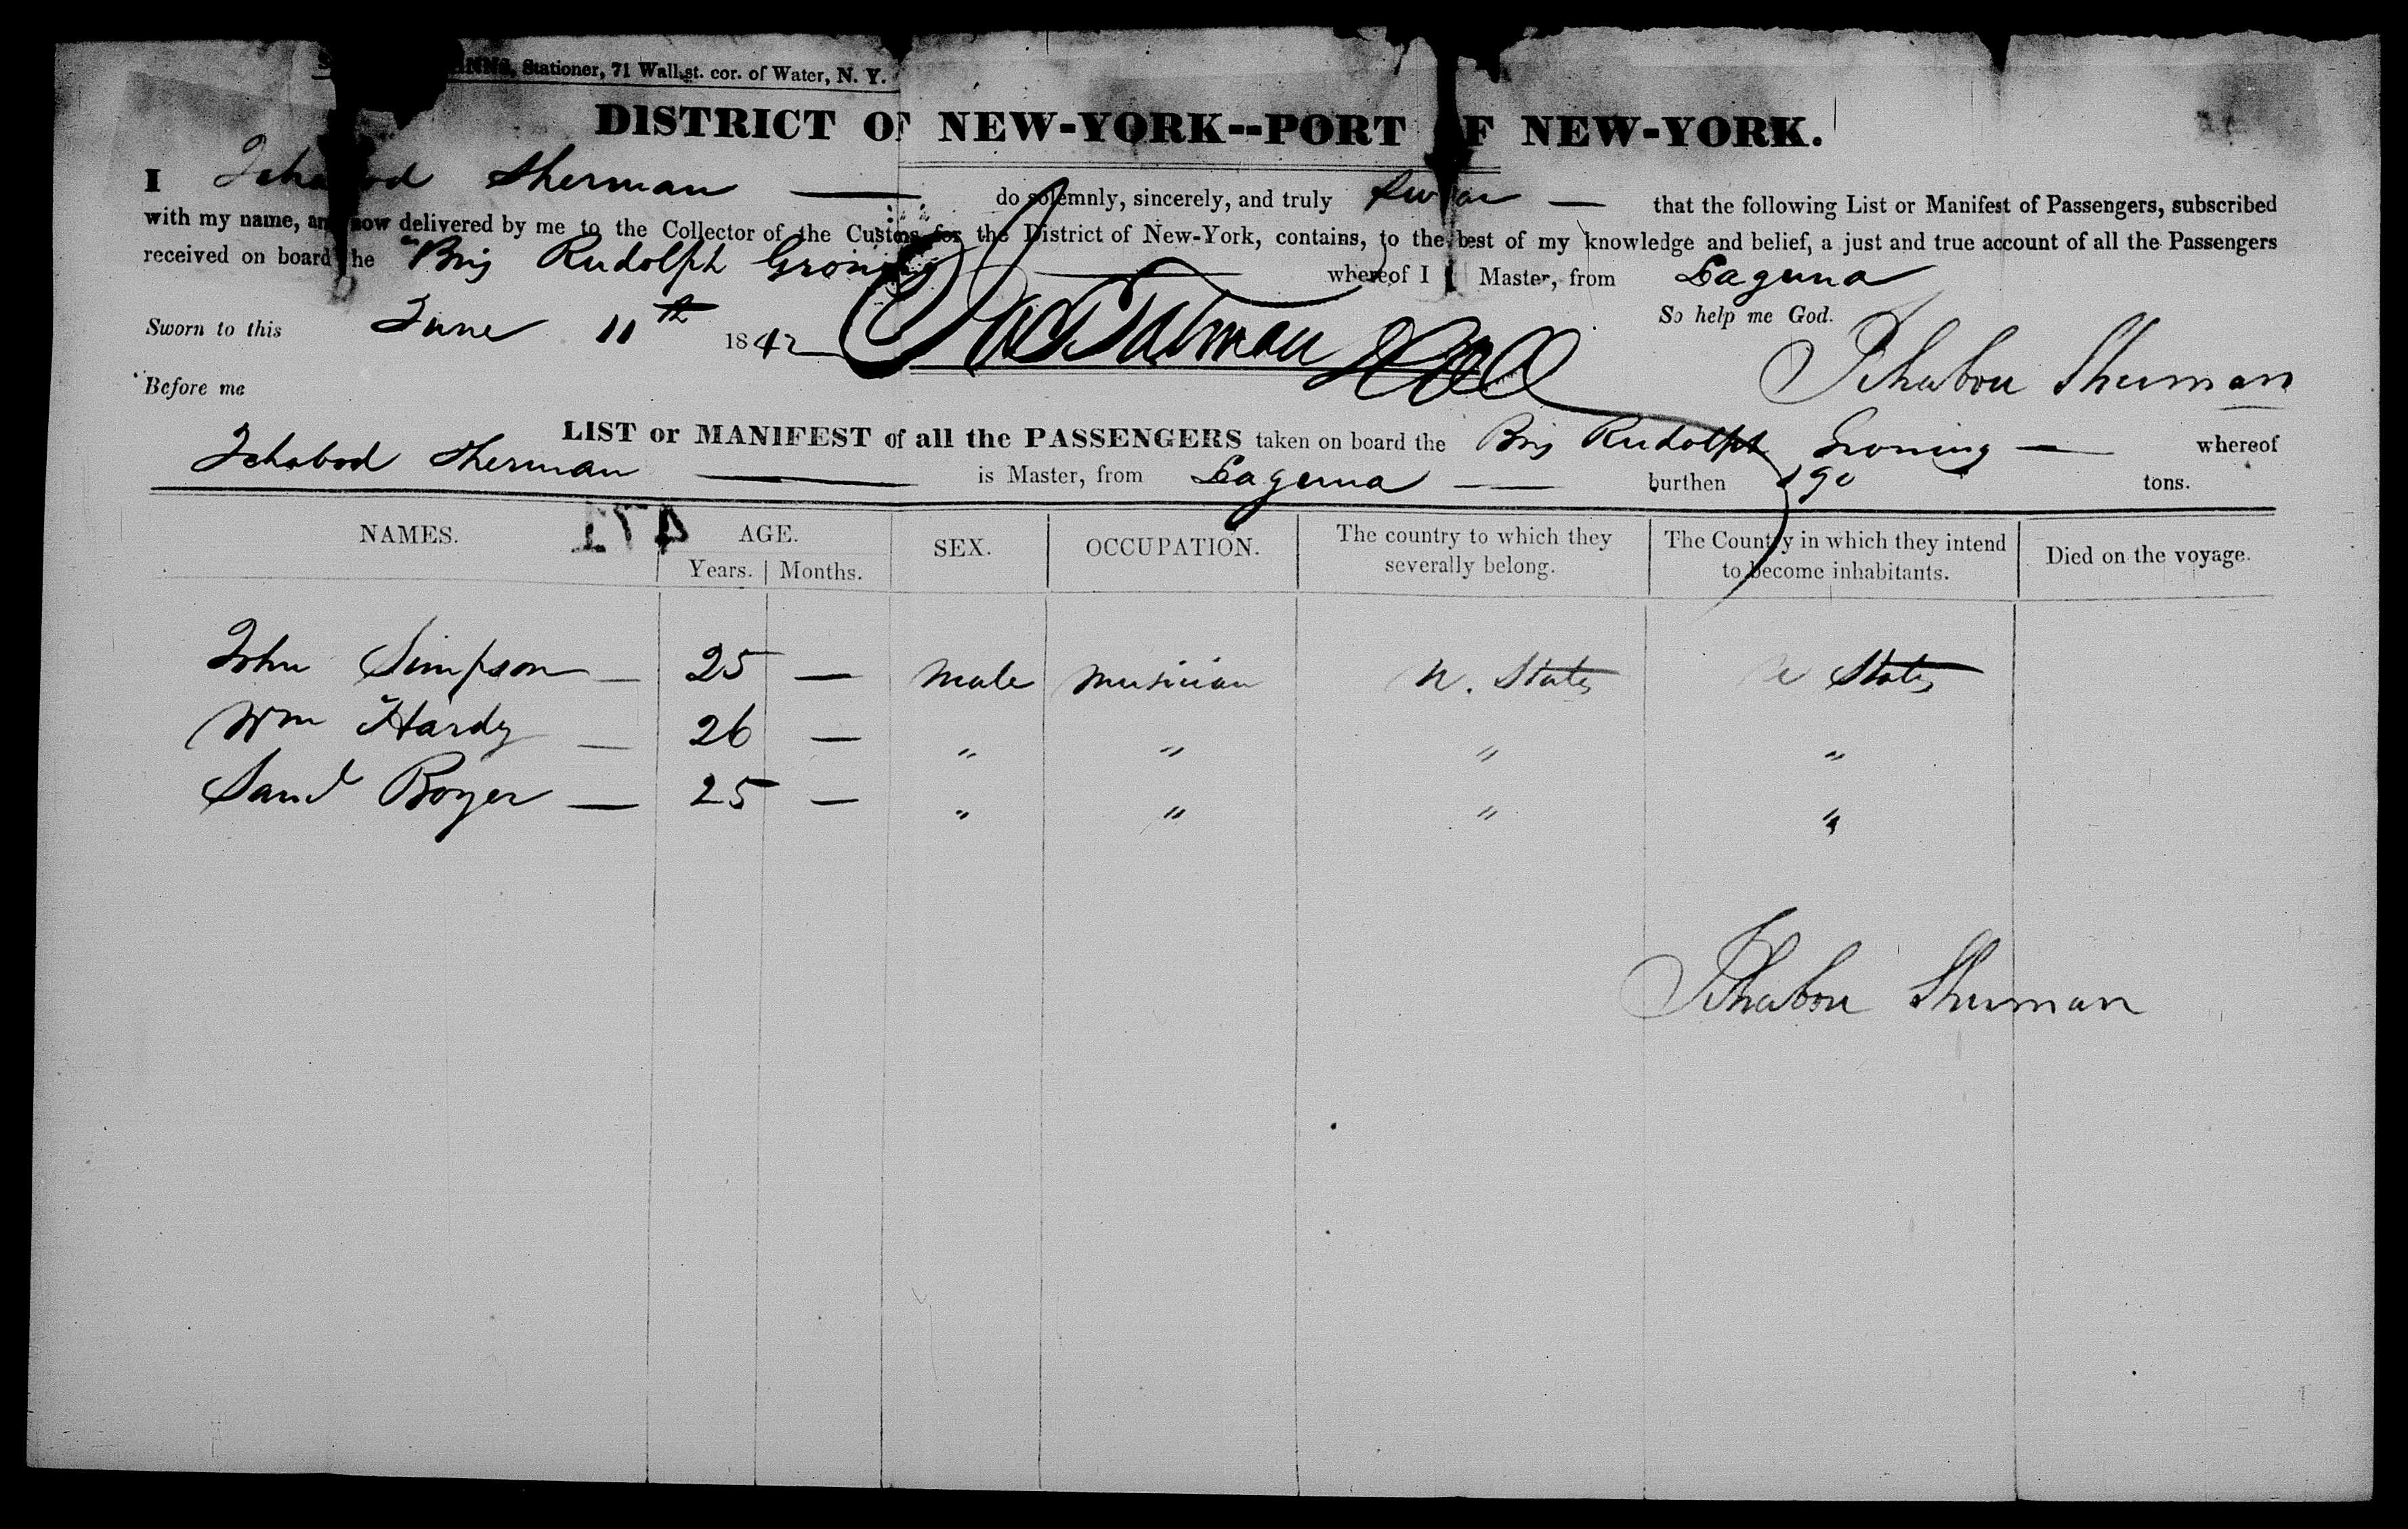 Stationer, 71 Wall-st. cor. of Water, N. Y.
DISTRICT OF NEW-YORK--PORT OF NEW-YORK.
I Ichabod Sherman — do solemnly, sincerely, and truly swear — that the following List or Manifest of Passengers, subscribed
with my name, and now delivered by me to the Collector of the Customs for the District of New-York, contains, to the best of my knowledge and belief, a just and true account of all the Passengers
received on board the Brig Rudolph Groning whereof I Master, from Laguna
Sworn to this June 11th 1842 So help me God.
Before me Ichabod Sherman
LIST or MANIFEST of all the PASSENGERS taken on board the Brig Rudolph Groning — whereof
Ichabod Sherman — is Master, from Laguna — burthen 190 tons.
NAMES. AGE. SEX. OCCUPATION. The country to which they severally belong. The Country in which they intend to become inhabitants. Died on the voyage.
Years. Months.
John Simpson — 25 — male musician U. States U States
Wm Hardy — 26 — " " " "
Saml Boyer — 25 — " " " "
Ichabod Sherman